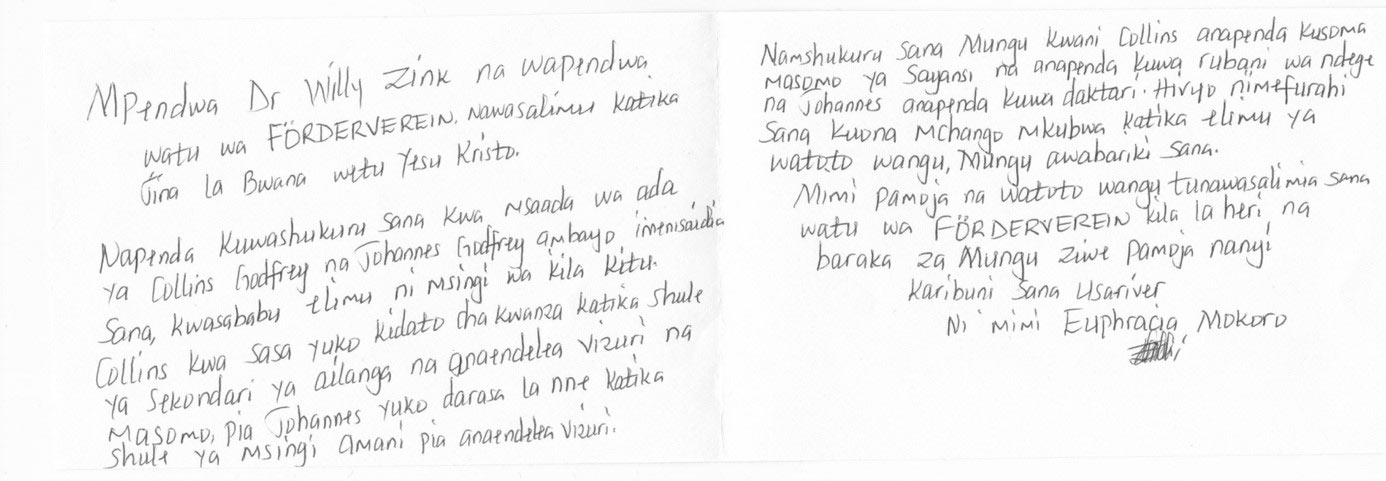 Mpendwa Dr Willy Zink na wapendwa
watu wa FÖRDERVEREIN. Nawasalimu katika
Jina la Bwana wetu Yesu Kristo.
Napenda kuwashukuru sana kwa msaada wa ada
ya Collins Godfrey na Johannes Godfrey ambayo imenisaidia
sana, kwasababu elimu ni msingi wa kila kitu.
Collins kwa sasa yuko kidato cha kwanza katika shule
ya sekondari ya ailanga na anaendelea vizuri na
masomo, pia Johannes yuko darasa la nne katika
shule ya msingi amani pia anaendelea vizuri.
Namshukuru sana Mungu kwani Collins anapenda kusoma
masomo ya Sayansi na anapenda kuwa rubani wa ndege
na Johannes anapenda kuwa daktari. Hivyo nimefurahi
sana kuona mchango mkubwa katika elimu ya
watoto wangu, Mungu awabariki sana.
Mimi pamoja na watoto wangu tunawasalimia sana
watu wa FÖRDERVEREIN kila la heri na
baraka za Mungu ziwe pamoja nanyi
Karibuni sana Usariver
Ni mimi Euphracia Mokoro